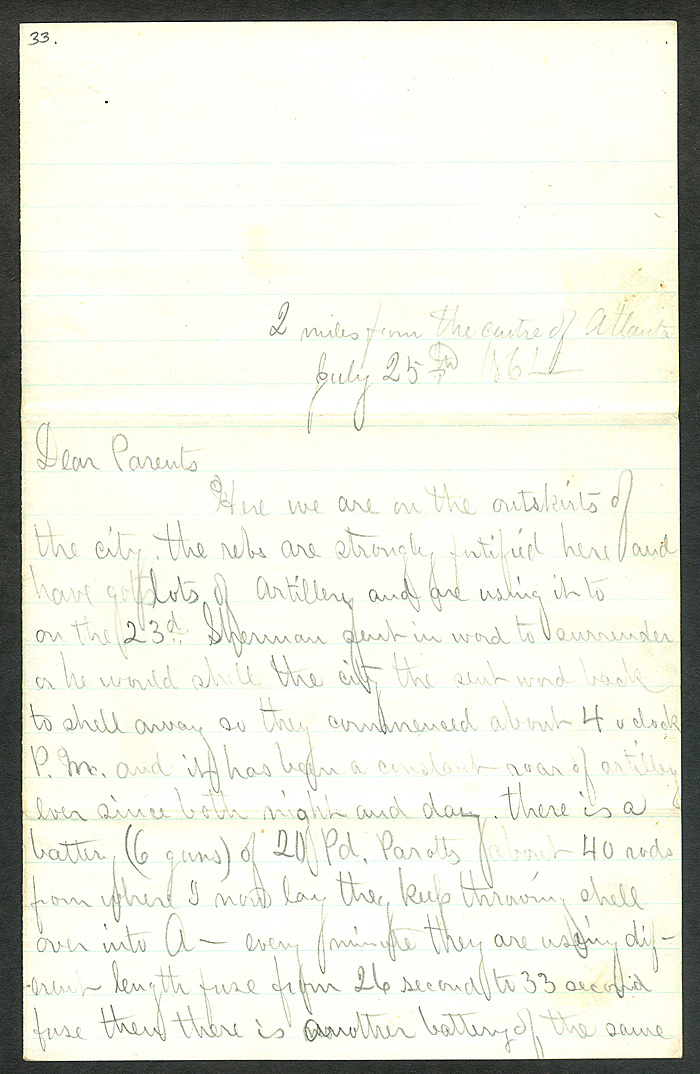 33.
2 miles from the centre of Atlanta
July 25th 1864
Dear Parents
Here we are on the outskirts of
the city. the rebs are strongly fortified here and
have got lots of Artillery and are using it to
on the 23d. Sherman sent in word to surrender
or he would shell the city the sent word back
to shell away so they commenced about 4 oclock
P. M. and it has been a constant roar of artillery
ever since both night and day. there is a
battery (6 guns) of 20 Pd. Parotts about 40 rods
from where I now lay they keep throwing shell
over into A— every minute they are using dif-
erent length fuse from 26 second to 33 second
fuse then there is another battery of the same